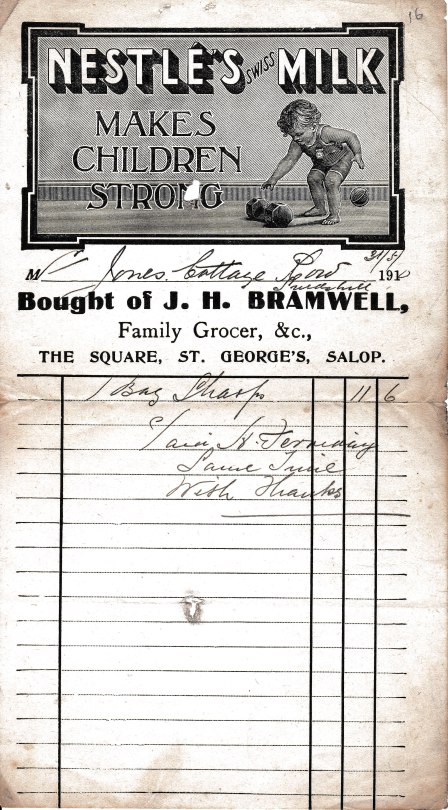 16
NESTLÉ'S SWISS MILK
MAKES
CHILDREN
STRONG
31/5/
M Jones Cottage Row 191
Bought of J. H. BRAMWELL,
Family Grocer, &c.,
THE SQUARE, ST. GEORGE'S, SALOP.
1 Bag Sharps 11 6
Paid H.
Same Time
With Thanks